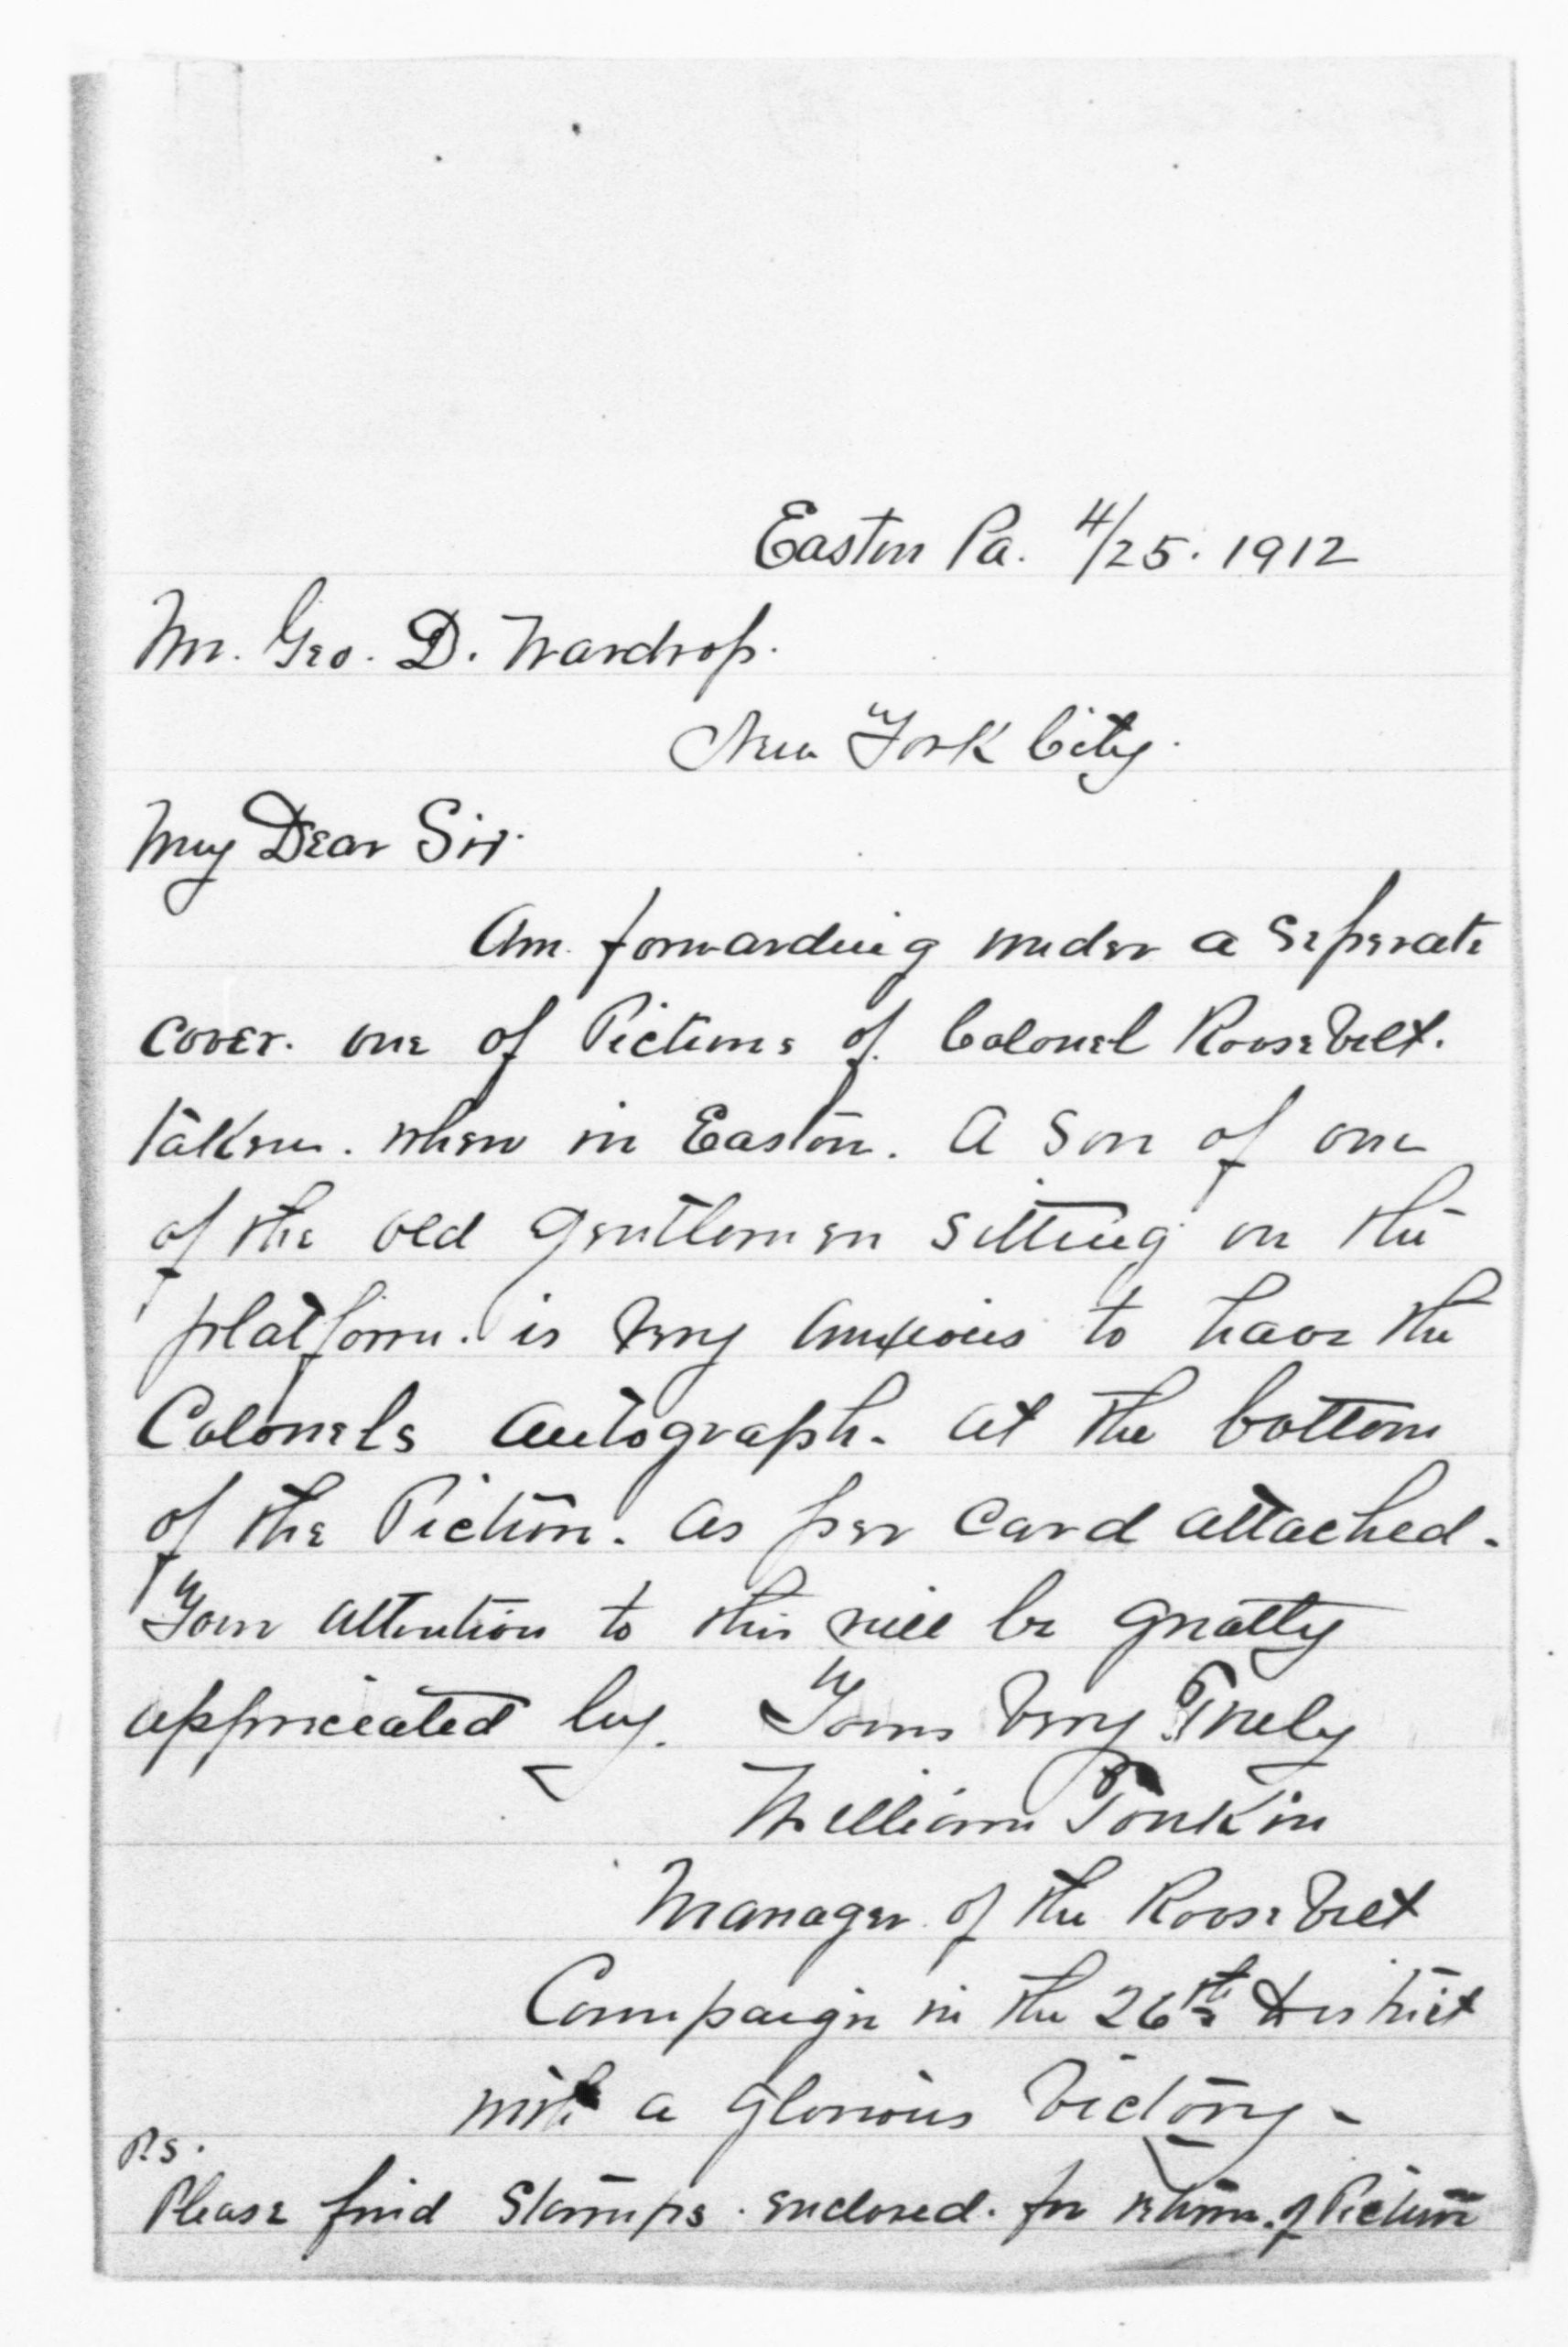 Easton Pa. 4/25. 1912
Mr. Geo. D. Wardrop.
New York City.
My Dear Sir.
Am forwarding under a seperate
cover. one of Pictures of Colonel Roosevelt.
taken. when in Easton. A Son of one
of the old Gentlemen sitting on the
platform. is very anxious to have the
Colonels autograph. at the bottom
of the Picture. as per card attached.
Your attention to this will be greatly
appriciated by. Yours Very Truly
William Tonkin
Manager of the Roosevelt
Campaign in the 26th District
with a Glorious Victory -
P.S.
Please find Stamps. enclosed. for return. of Picture